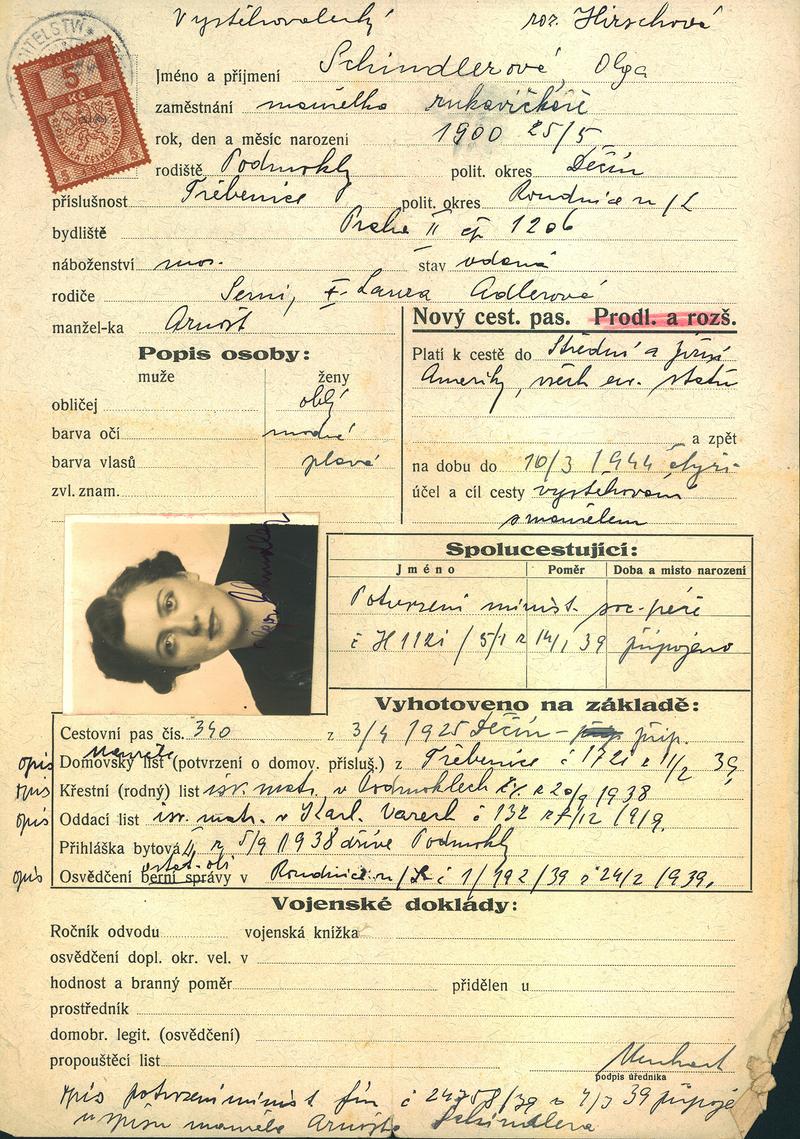 Vystěhovalecký roz. Hirschová
5
Kč
Jméno a příjmení Schindlerová, Olga
zaměstnání manželka rukavičkáře
rok, den a měsíc narozeni 1900 25/5
rodiště Podmokly polit. okres Děčín
příslušnost Třebenice polit. okres Roudnice n/L
bydliště Praha II čp 1206
náboženství mos. stav vdaná
rodiče Laura Adlerová
manžel-ka Arnošt
Nový cest. pas. Prodl. a rozš.
Platí k cestě do Střední a Jižní
Ameriky, všech ev. států
a zpět
na dobu do 10/3 1944 čtyři
účel a cíl cesty vystěhování
s manželem
Popis osoby:
muže ženy
obličej oblý
barva očí modré
barva vlasů plavé
zvl. znam.
Spolucestující:
Jméno Poměr Doba a misto narození
Potvrzení minist. soc. péče
č H 1121 / 5/1 z 14/1 39 připojeno
Vyhotoveno na základě:
Cestovní pas čís. 340 z 3/4 1925 Děčín - přip.
manžela
opis Domovský list (potvrzení o domov. přísluš.) z Třebenice č 1721 z 11/2 39
opis Křestní (rodný) list isr. mat. v Podmoklech z 20/9 1938
opis Oddací list isr. mat. v Karl. Varech č 132 1919.
Přihláška bytová z 5/9 1938 dříve Podmokly
opis Osvědčení berní správy v Roudnice n/L č 1/192/39 z 24/2 1939.
Vojenské doklady:
Ročník odvodu vojenská knížka
osvědčení dopl. okr. vel. v
hodnost a branný poměr přidělen u
prostředník
domobr. legit. (osvědčení)
propouštěcí list
podpis úředníka
opis potvrzení minist fin č 24758/39 z 4/3 39 připojen
u spisu manžela Arnošta Schindlera